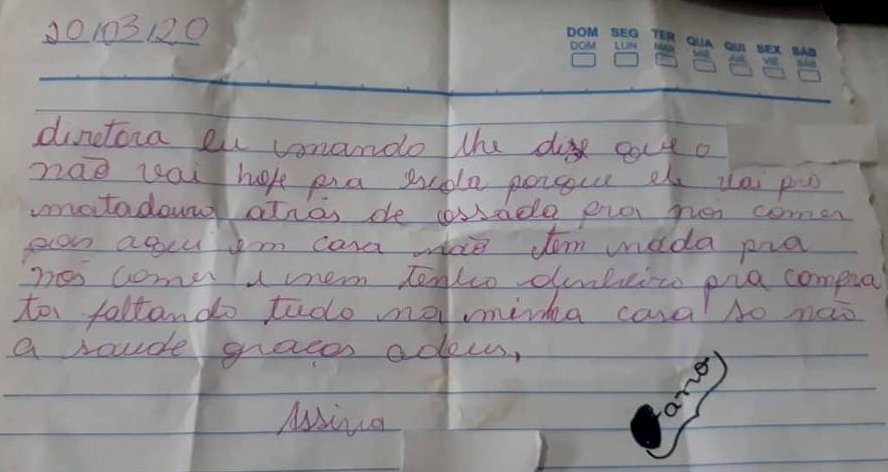 20/03/20
DOM SEG TER QUA QUI SEX SÁB
DOM LUN MAR MIÉ JUE VIE SÁB
diretora eu mando lhe dize que o
não vai hoje pra escola porque ele vai pro
matadouro atrás de ossada pra nós comer
pos aqui em casa não tem nada pra
nós comer e nem tenho dinheiro pra compra
toi faltando tudo na minha casa so não
a saude graças adeus,
Assina
ano